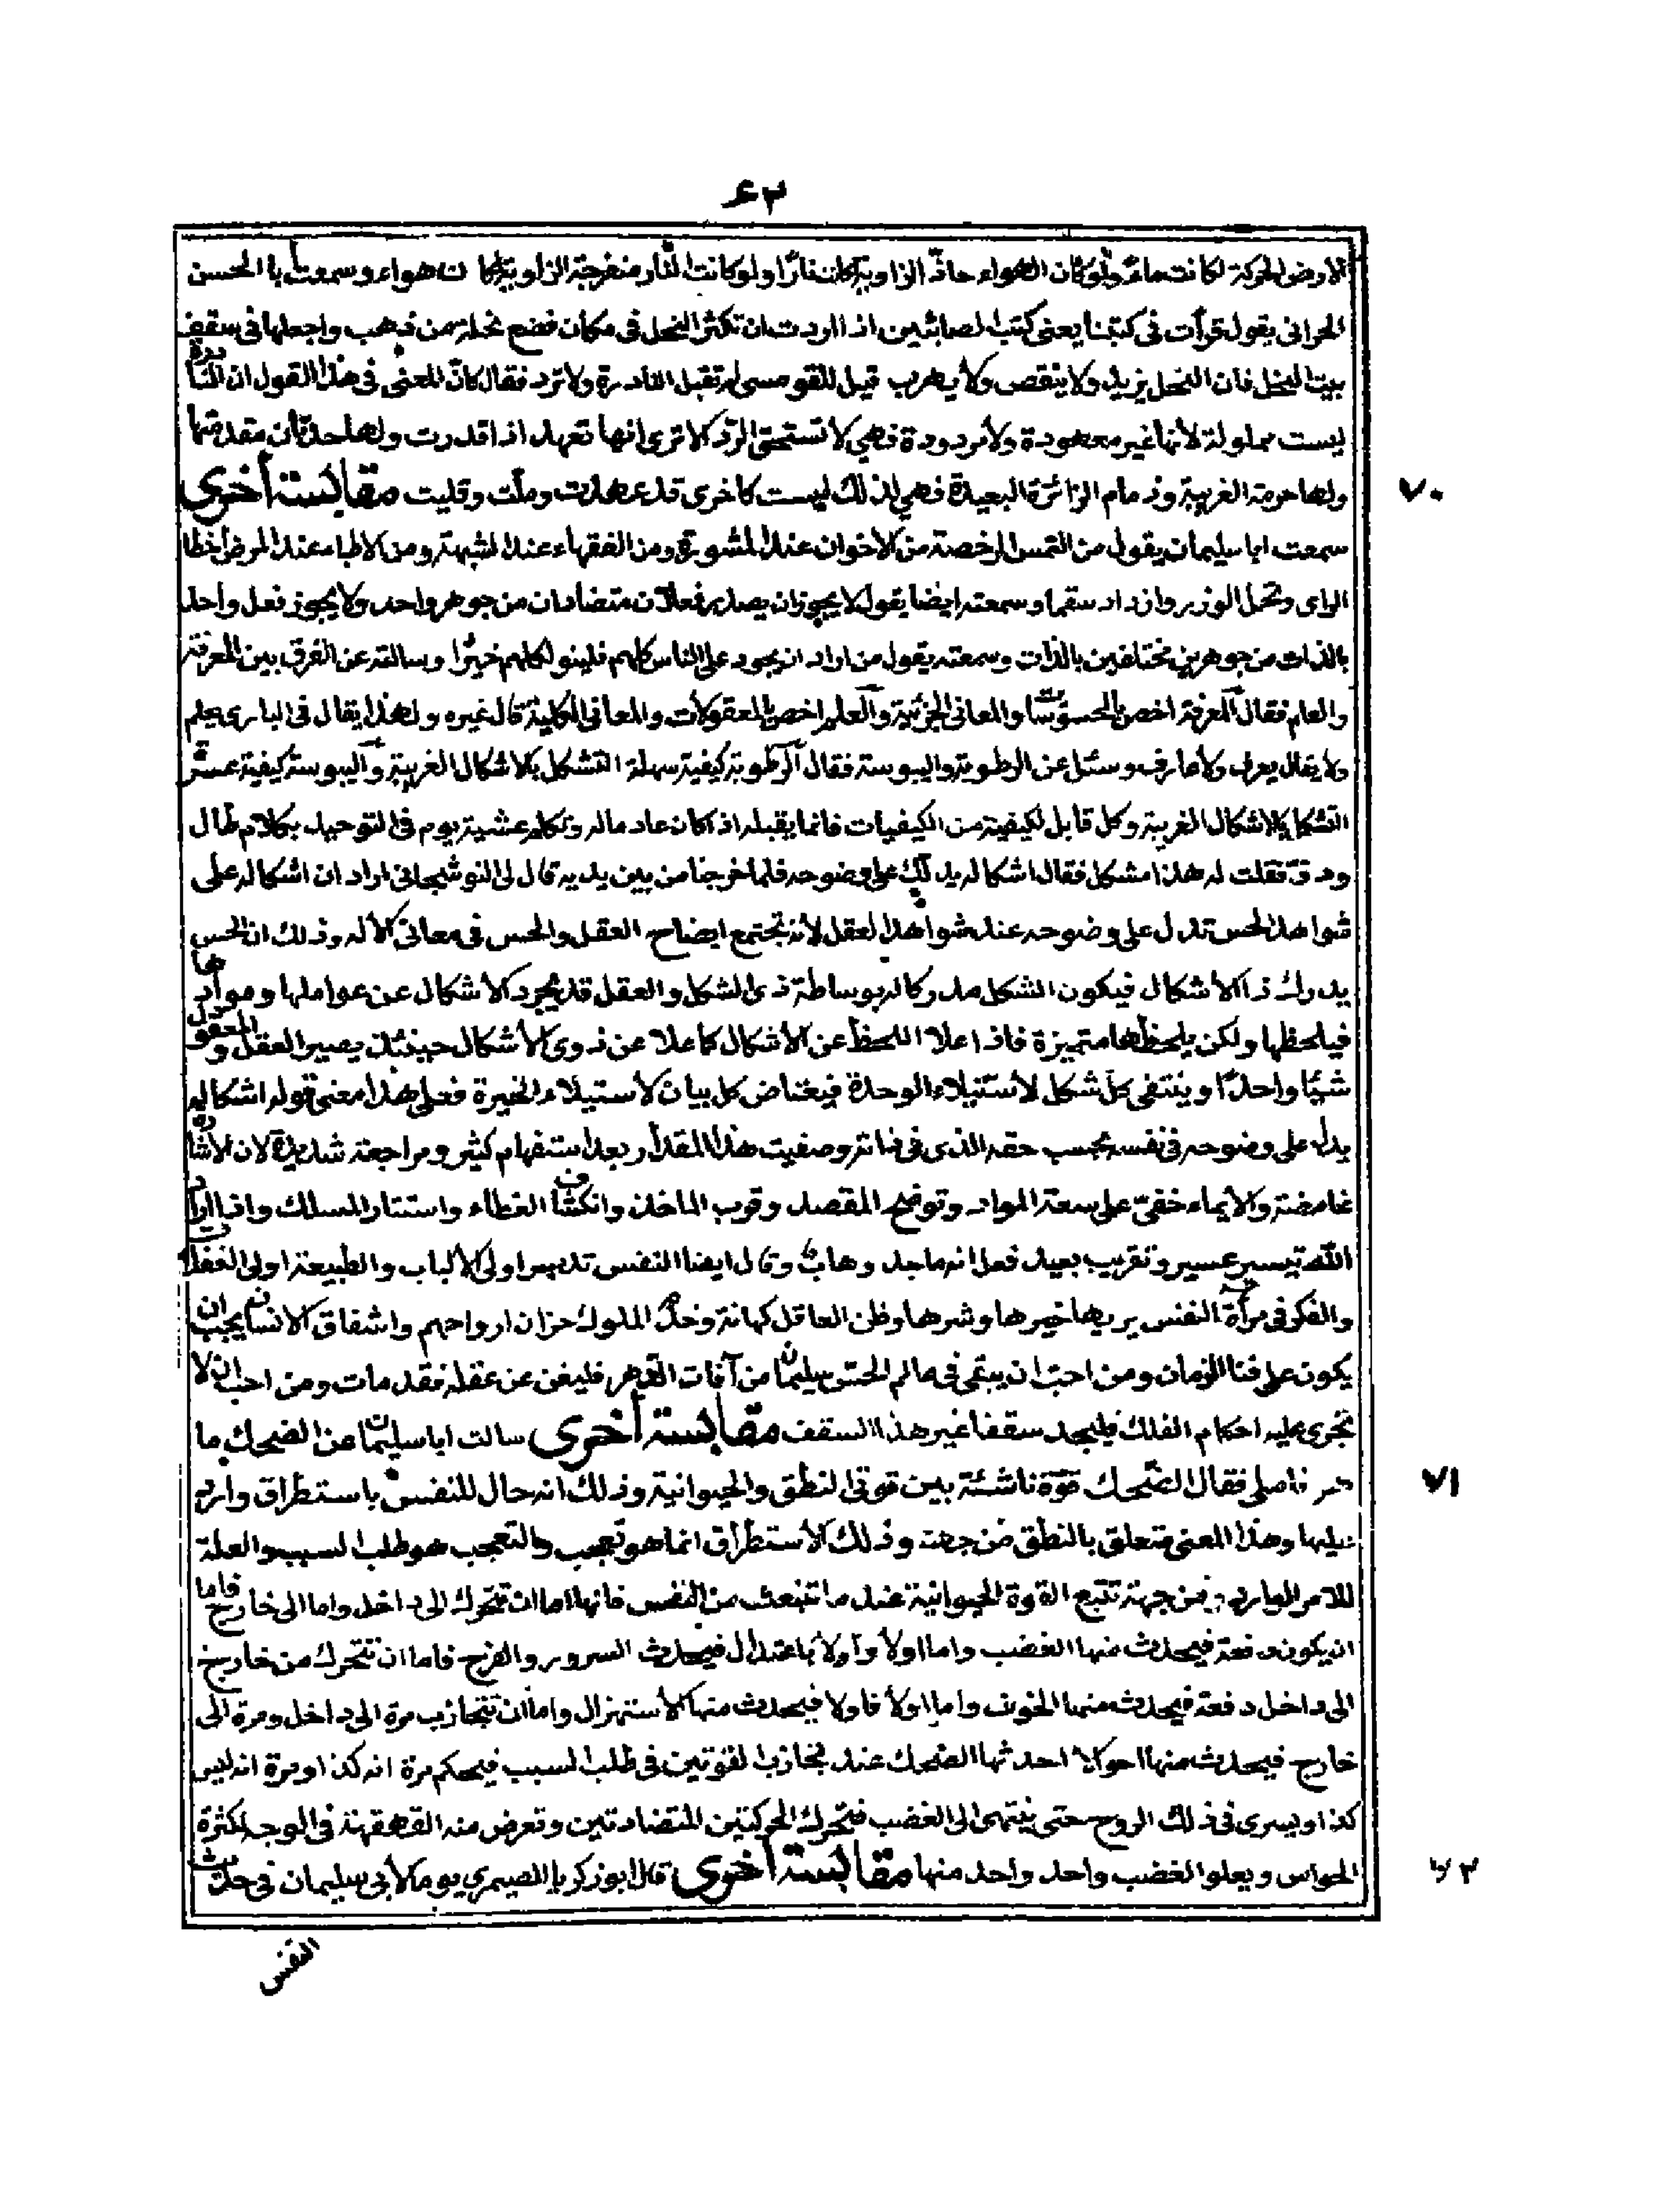 ٤٢
الارض الحركة لكانت ماء ولو كان الهواء حاد الزاوية لكان نارا ولو كانت النار منفرجة الزاوية لكانت هواء وسمعت ابا الحسن
الحراني يقول قرأت في كتبنا يعني كتب الصابئين اذا اردت ان تكثر النحل في مكان فضع نحلة من ذهب واجعلها في سقف
بيت النحل فان النحل يزيد ولا ينقص ولا يهرب قيل للقومسى لم تقبل النادرة ولا ترد فقال كان المعنى في هذا القول ان النادرة
ليست مملولة لانها غير معهودة ولا مردودة فهي لا تستحق الرد الا ترى انها تعهد اذا قدرت ولها حد فان مقدمتها
ولها حرمة الغريبة وذمام الزائرة البعيدة فهي لذلك ليست كاخرى قد عهدت وملت وقليت مقابسة أخرى
٧٠
سمعت ابا سليمان يقول من التمس الرخصة من الاخوان عند المشورة ومن الفقهاء عند الشبهة ومن الاطباء عند المرض اخطا
الراى وتحمل الوزر وازداد سقما وسمعته ايضا يقول لا يجوز ان يصدر فعلان متضادان من جوهر واحد ولا يجوز فعل واحد
بالذات من جوهرين مختلفين بالذات وسمعته يقول من اراد ان يجود على الناس كلهم فلينو لكلهم خيرا وسالته عن الفرق بين المعرفة
والعلم فقال المعرفة اخص بالمحسوسات والمعاني الجزئية والعلم اخص بالمعقولات والمعاني الكلية قال غيره ولهذا يقال في الباري يعلم
ولا يقال يعرف ولا عارف وسئل عن الرطوبة واليبوسة فقال الرطوبة كيفية سهلة التشكل بالاشكال الغريبة واليبوسة كيفية عسرة
التشكل بالاشكال الغريبة وكل قابل لكيفية من الكيفيات فانما يقبلها اذا كان عادما له وتكلم عشية يوم في التوحيد بكلام طال
ودق فقلت له هذا مشكل فقال اشكاله يدلك على وضوحه فلما خرجنا من بين يديه قال لى النوشجاني اراد ان اشكاله على
شواهد الحس تدل على وضوحه عند شواهد العقل لانه تجتمع ايضاح العقل والحس في معاني الاله وذلك ان الحس
يدرك ذا الاشكال فيكون الشكل مدركا له بوساطة ذى الشكل والعقل قد يجرد الاشكال عن عواملها وموادها
فيلحظها ولكن يلحظها متميزة فاذا علا اللحظ عن الاشكال كما علا عن ذوى الاشكال حينئذ يصير العقل والمعقول
شيئا واحدا وينتفى كل شكل لاستيلاء الوحدة فيغتاض كل بيان لاستيلاء الخيرة فعلى هذا معنى قوله اشكاله
يدل على وضوحه في نفسه بحسب حقه الذى في ذاته وصفيت هذا المقدار بعد استفهام كثير ومراجعة شديدة لان الاشارة
غامضة والايماء خفى على سعة المواد وتوضح المقصد وقرب الماخذ وانكشاف الغطاء واستتار المسلك واذا اراد
الله تيسير عسير وتقريب بعيد فعل انه ماجد وهاب وقال ايضا النفس تدبير اولى الالباب والطبيعة اولى الغفلات
والفكر في مرأة النفس يريها خيرها وشرها وظن العاقل كهانة وخدم الملوك حزان ارواحهم واشفاق الانسان يجب ان
يكون على فنا الزمان ومن احب ان يبقى في عالم الحس سليما من آفات الدهر فليغن عن عقله فقد مات ومن احب ان لا
تجرى عليه احكام الفلك فليجد سقفا غير هذا السقف مقابسة أخرى سالت ابا سليمان عن الضحك ما
هو فاملى فقال الضحك قوة ناشئة بين قوتي النطق والحيوانية وذلك انه حال للنفس باستطراق وارد
٧١
عليها وهذا المعنى متعلق بالنطق من جهة وذلك الاستطراق انما هو تعجب والتعجب هو طلب السبب والعلة
للامر الوارد ومن جهة تتبع القوة الحيوانية عند ما تنبعث من النفس فانها اما ان تتحرك الى داخل واما الى خارج فاما
ان يكون دفعة فيحدث منها الغضب واما اولا واولا باعتدال فيحدث السرور والفرح فاما ان تتحرك من خارج
الى داخل دفعة فيحدث منها الخوف واما اولا فاولا فيحدث منها الاستهزال واما ان تتجاذب مرة الى داخل ومرة الى
خارج فيحدث منها احوالا احدثها الضحك عند تجاذب القوتين في طلب السبب فيحكم مرة انه كذا ومرة انه ليس
كذا ويسرى في ذلك الروح حتى ينتهى الى الغضب فتحرك الحركتين المتضادتين وتعرض منه القهقهة في الوجه لكثرة
الحواس ويعلو الغضب واحد واحد منها مقابسة أخرى قال ابو زكريا الصيمري يوما لابي سليمان في حديث
٧٢
النفس